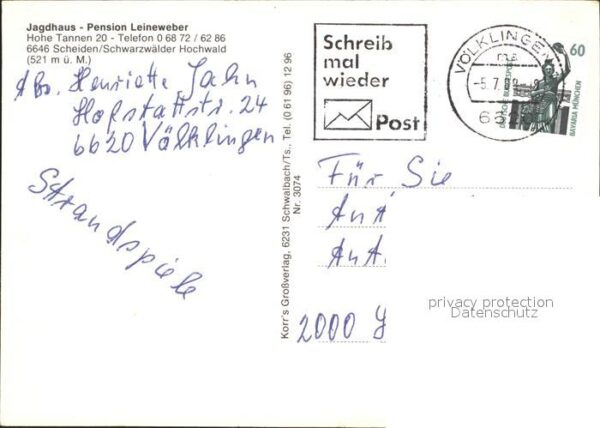 Jagdhaus - Pension Leineweber
Hohe Tannen 20 - Telefon 0 68 72 / 62 86
6646 Scheiden/Schwarzwälder Hochwald
(521 m ü. M.)
Abs. Henriette Jahn
Hofstattstr. 24
6620 Völklingen
Strandspiele
Korr's Großverlag, 6231 Schwalbach/Ts., Tel. (0 61 96) 12 96
Nr. 3074
Schreib
mal
wieder
Post
VÖLKLINGEN
-5.7.
60
DEUTSCHE BUNDESPOST
BAVARIA MÜNCHEN
Für Sie
Ant
Ant.
2000
privacy protection
Datenschutz